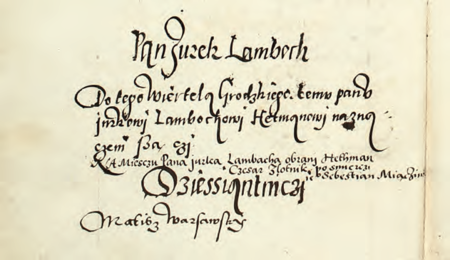 Pan Jurek Lamboch
Do tego wiertela Grodzkiego. temv panv
Jurkowi Lambochowi Hetmanowi nazna
czeni są czi
Na Miesczu Pana Jurka Lambacha obrani Hethman
Czesar Zlotnik po smierczi Sebestian
Dziessiątniczi
Matisz Warsawsky